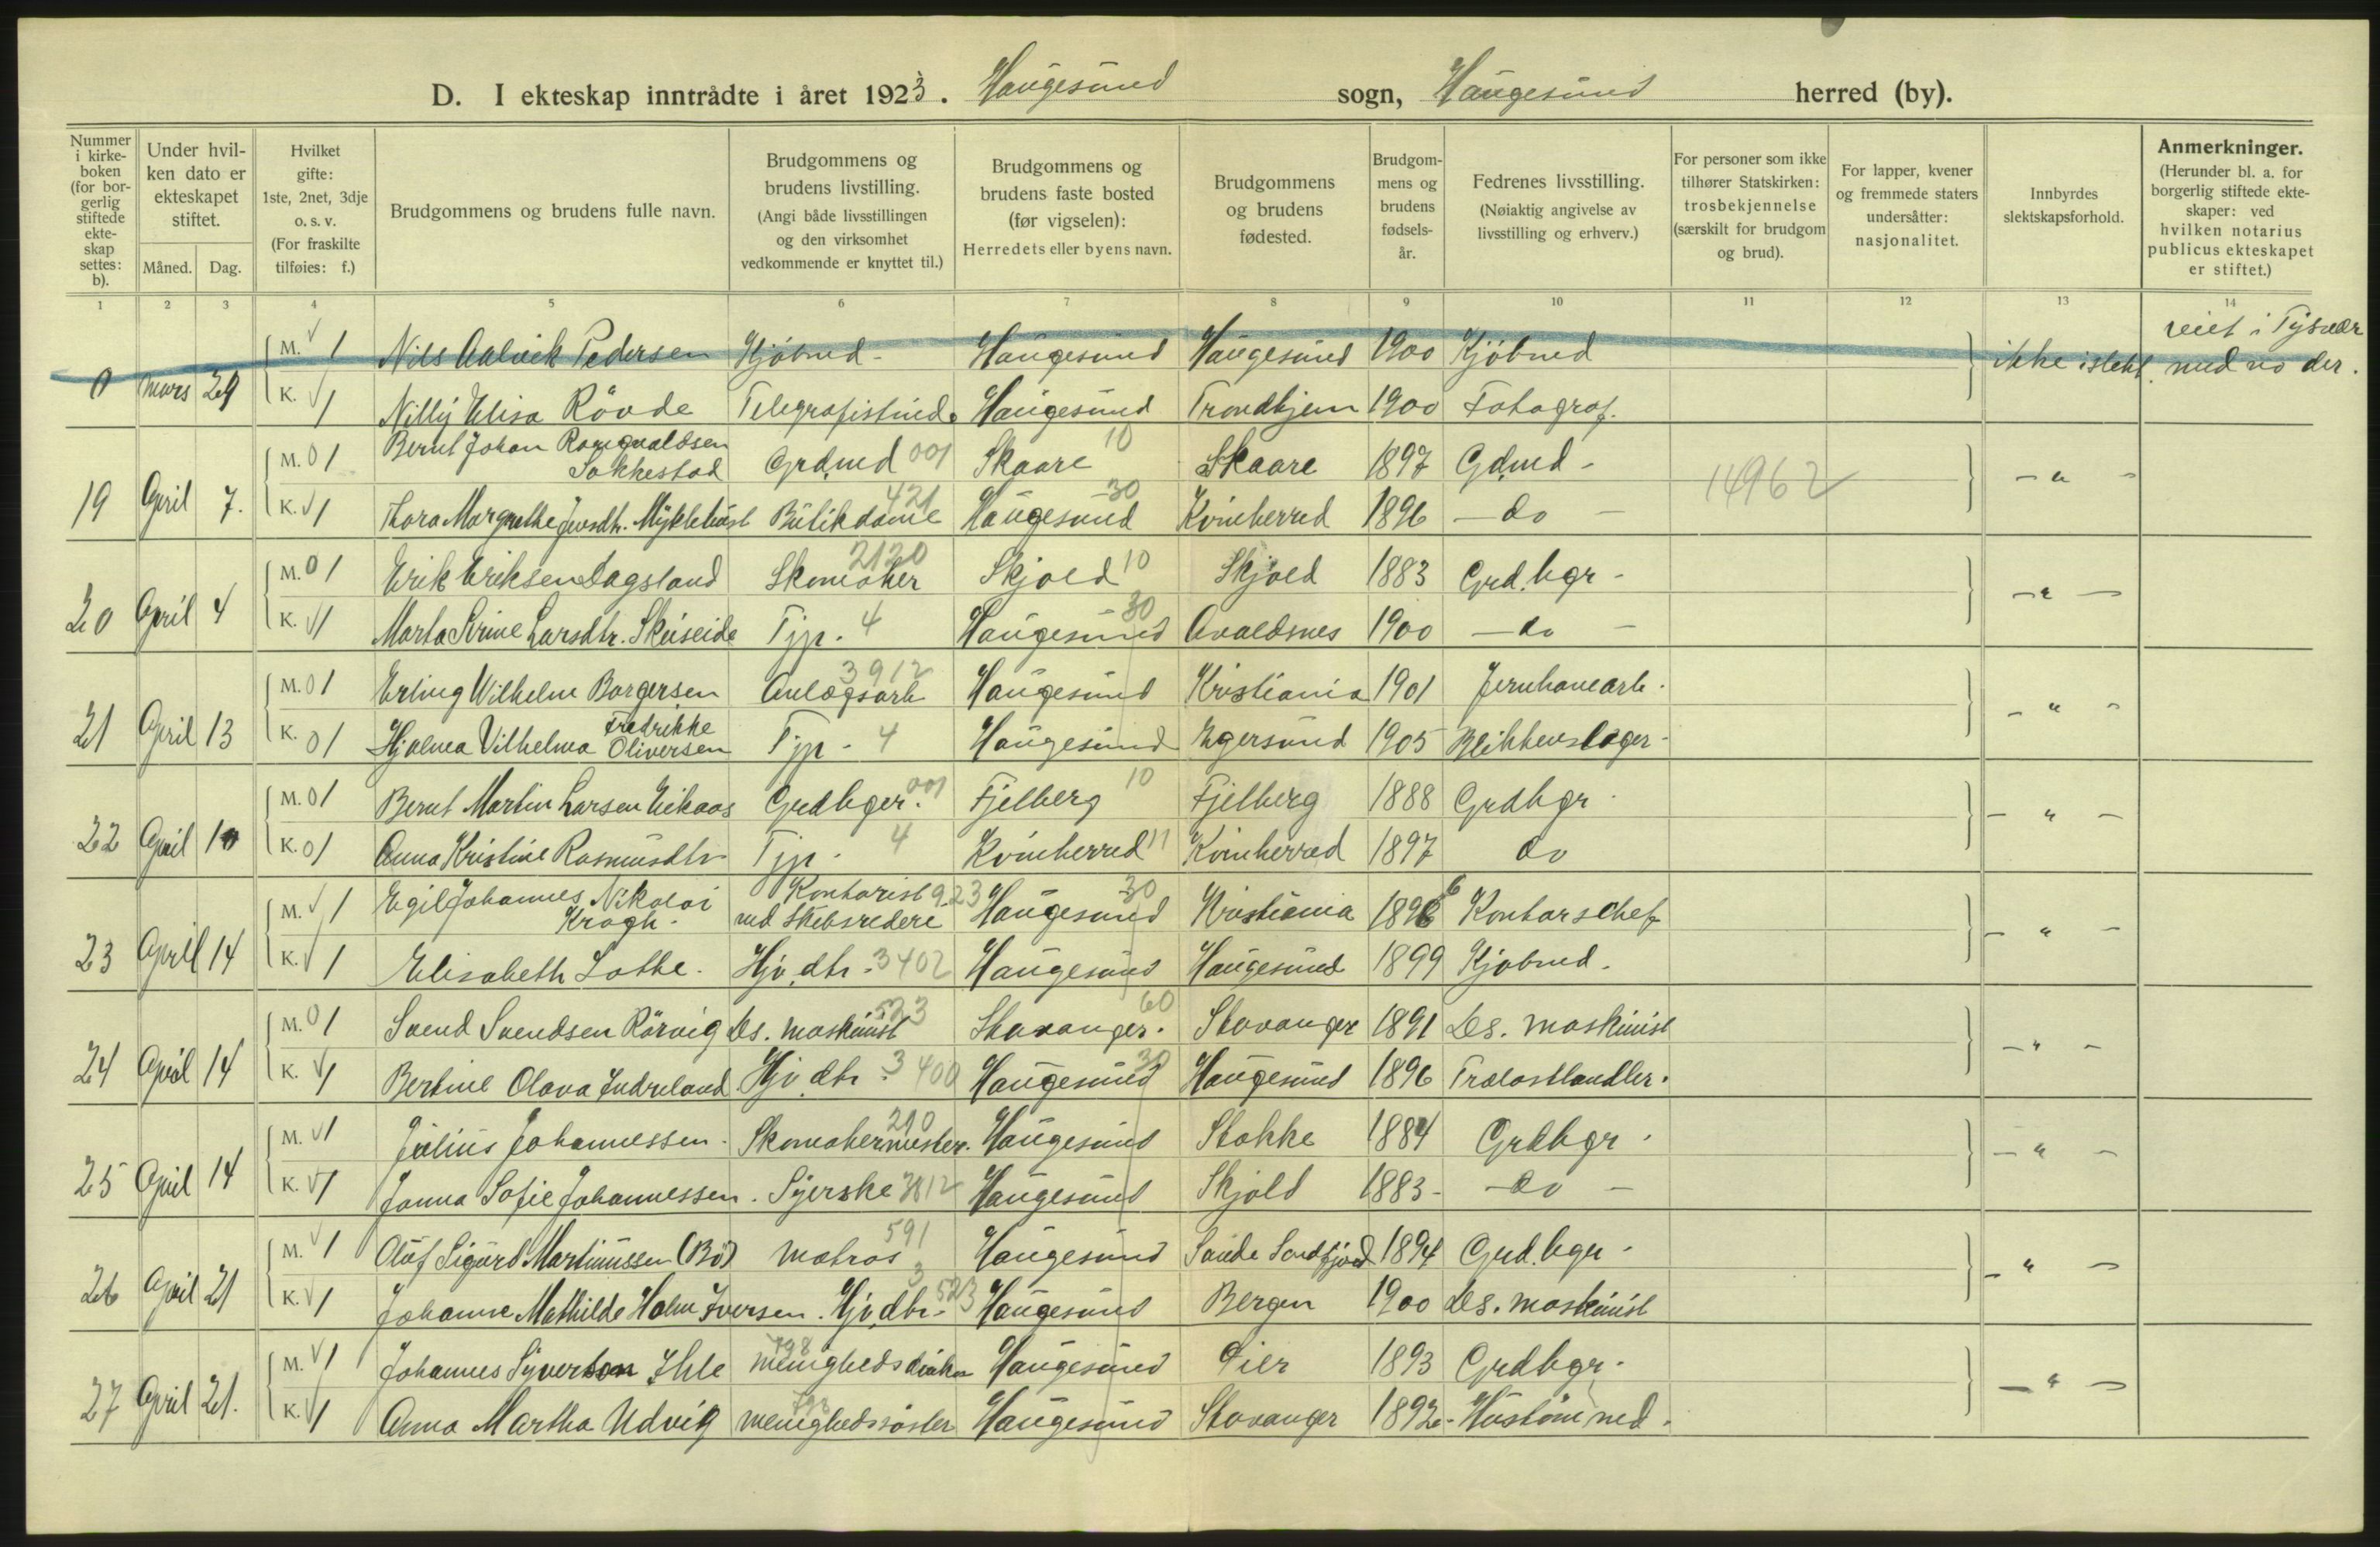 D. I ekteskap inntrådte i året 1923. Haugesund sogn, Haugesund herred (by).
Nummer i kirke-boken (for bor-gerlig stiftede ekte-skap settes: b).
Under hvil-ken dato er ekteskapet stiftet.
Måned. Dag.
Hvilket gifte: 1ste, 2net, 3dje o. s. v. (For fraskilte tilføies: f.)
Brudgommens og brudens fulle navn.
Brudgommens og brudens livstilling. (Angi både livsstillingen og den virksomhet vedkommende er knyttet til.)
Brudgommens og brudens faste bosted (før vigselen): Herredets eller byens navn.
Brudgommens og brudens fødested.
Brudgom-mens og brudens fødsels-år.
Fedrenes livsstilling. (Nøiaktig angivelse av livsstilling og erhverv.)
For personer som ikke tilhører Statskirken: trosbekjennelse (særskilt for brudgom og brud).
For lapper, kvener og fremmede staters undersåtter: nasjonalitet.
Innbyrdes slektskapsforhold.
Anmerkninger. (Herunder bl. a. for borgerlig stiftede ekte-skaper: ved hvilken notarius publicus ekteskapet er stiftet.)
1 2 3 4 5 6 7 8 9 10 11 12 13 14
M. 1 Nils Aalvik Pedersen Kjøbmd - Haugesund Haugesund 1900 Kjøbmd ikke i slekt. viet i Tysvær med no der.
0 mars 29 K. 1 Nilly Elisa Røvde Telegrafistinde Haugesund Trondhjem 1900 Fotograf.
M. 0 1 Bernt Johan Rangvaldsen Sakkestad Grdmd 001 Skaare 10 Skaare 1897 Gdmd - 14962 - " -
19 April 7. K. 1 Thora Margrethe Jensdtr. Myklebust Butikdame 421 Haugesund 30 Kvinherred 1896 - do -
M. 0 1 Erik Eriksen Dagsland Skomaker 2120 Skjold 10 Skjold 1883 Grd.bgr - - " -
20 April 4 K. 1 Marta Serine Larsdtr. Skeiseide Tjp. 4 Haugesund 30 Avaldsnes 1900 - do -
M. 0 1 Erling Wilhelm Borgersen Anlægsarb 3912 Haugesund Kristiania 1901 Jernbanearb. - " -
21 April 13 K. 0 1 Hjalma Vilhelma Fredrikke Oliversen Tjp - 4 Haugesund Egersund 1905 Blikkenslager -
M. 0 1 Bernt Martin Larsen Eikaas Grdbger. 001 Fjelberg 10 Fjelberg 1888 Grdbgr. - " -
22 April 10 K. 0 1 Anna Kristine Rasmusdtr Tjp. 4 Kvinherred 11 Kvinherred 1897 do
M. 1 Egil Johannes Nikolai Krogh. Kontorist ved Skibsredere 923 Haugesund 30 Kristiania 1896 Kontorschef - " -
23 April 14 K. 1 Elisabeth Lothe. Hjv. dtr. 3402 Haugesund Haugesund 1899 Kjøbmd.
M. 0 1 Svend Svendsen Rörvig Ds. maskinist 523 Stavanger. 60 Stavanger 1891 Ds. maskinist - " -
24 April 14 K. 1 Bertine Olava Indreland Hjv dtr. 3400 Haugesund 30 Haugesund 1896 Trælasthandler.
M. 1 Julius Johannessen. Skomakermester. 210 Haugesund Stokke 1884 Grdbgr. - " -
25 April 14 K. 1 Janna Sofie Johannessen. Syerske 3812 Haugesund Skjold 1883 - do -
M. 1 Oluf Sigurd Martinussen (Bø) Matros 591 Haugesund Sande Søndfjord 1894 Grd.bgr - - " -
26 April 21 K. 1 Johanne Mathilde Holm Iversen. Hjv. dtr. 3 523 Haugesund Bergen 1900 Ds. maskinist
M. 1 Johannes Syvertson Ihle menighedsdiakon 798 Haugesund Oier 1893 Grdbgr. - " -
27 April 21. K. 1 Anna Martha Udvig menighedssøster 798 Haugesund Stavanger 1892 - Hustømmed.